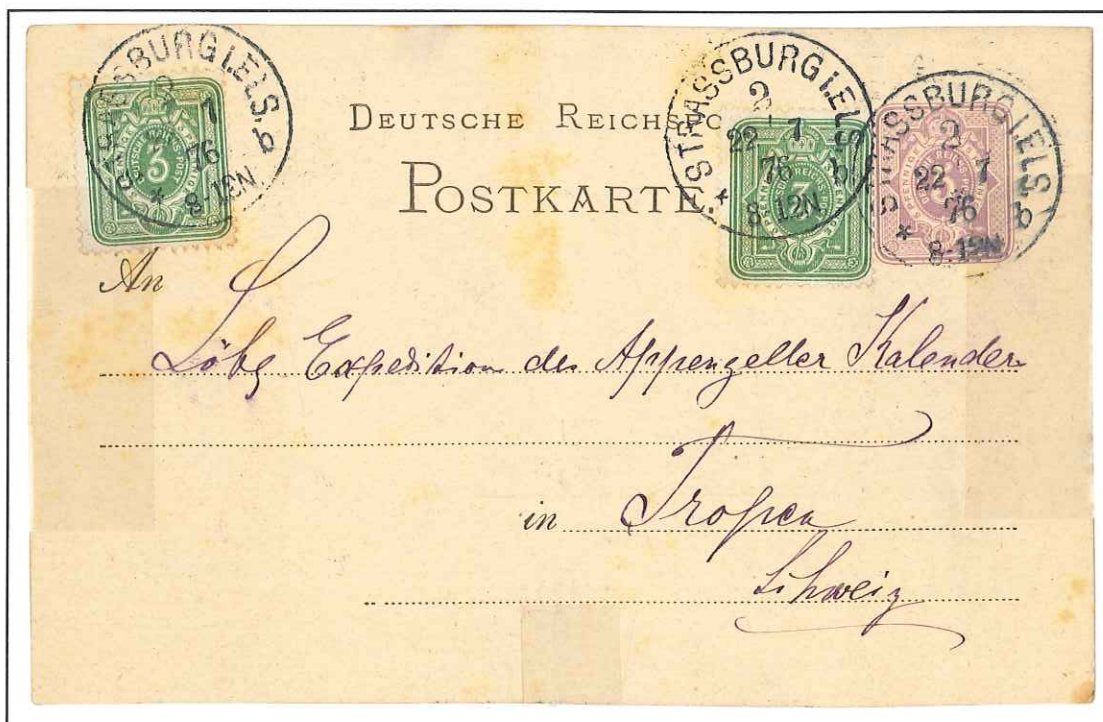 STRASSBURG I.ELS.
2
22 7
76
8-12N
DEUTSCHE REICHSPO
POSTKARTE.
STRASSBURG I.ELS
2
22 7
76
8-12N
STRASSBURG I.ELS
2
22 7
76
8-12N
3
3
5
An
Löbl Expedition des Appenzeller Kalenders
in Trogen
Schweiz